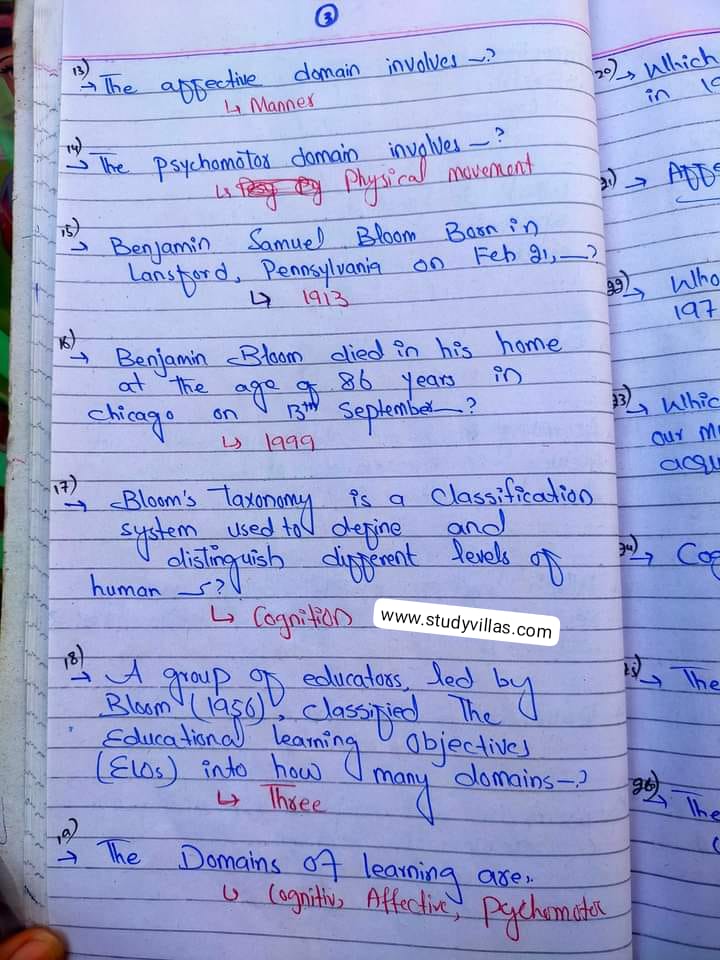 3
13) → The affective domain involves —?
↳ Manner
14) → The psychomotor domain involves —?
↳ Physical movement
15) → Benjamin Samuel Bloom Born in
Lansford, Pennsylvania on Feb 21, —?
↳ 1913
16) → Benjamin Bloom died in his home
at the age of 86 years in
chicago on 13th September —?
↳ 1999
17) → Bloom's Taxonomy is a classification
system used to define and
distinguish different levels of
human —?
↳ Cognition
www.studyvillas.com
18) → A group of educators, led by
Bloom (1956), classified The
Educational learning Objectives
(ELOs) into how many domains —?
↳ Three
19) → The Domains of learning are.
↳ Cognitiv, Affective, Pychomotor
20) → Which
in 19
21) →
22) → Who
197
23) → Whic
our M
acqu
24) → Cog
25) → The
26) → The